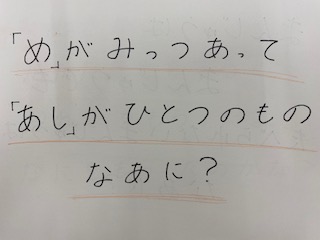 「め」がみっつあって
「あし」がひとつのもの
なあに？